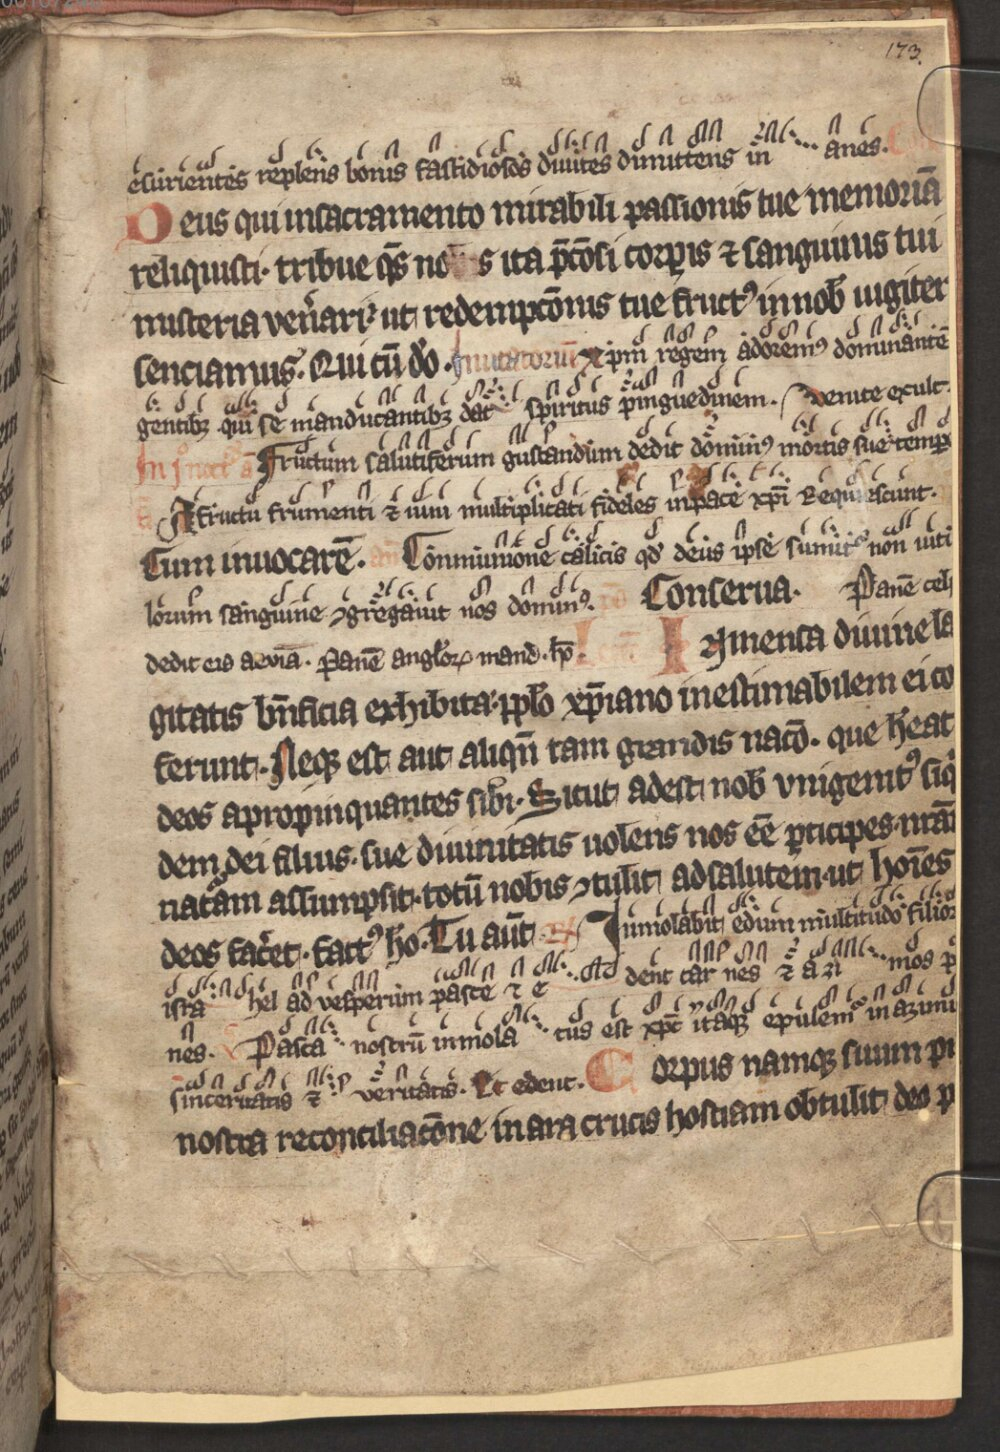 173.
esurientes replens bonis fastidiosos diuites dimittens in anes.
Deus qui insacramento mirabili passionis tue memoriā
reliquisti· tribue q̄s no s ita p̄cōsi corꝑis ⁊ sanguinis tui
misteria ven̄ari· ut redempcōnis tue fruct᷒ in nob̄ iugiter
senciamus. Qui cū do. Inuitatoriū xp̄m regem adorem᷒ dominātē
gentibꝫ qui se manducantibꝫ dat spiritus pinguedinem. Venite exult.
In j noct̄ a Fructum salutiferum gustandum dedit domin᷒ mortis sue tempe
A fructu frumenti ⁊ uini multiplicati fideles inpace xp̄i requiescunt.
Cum inuocarē. an Communione calicis qd̄ deus ipse sumit᷒ non uiti
lorum sanguine ꝯgregauit nos domin᷒. Conserua. Panē celi
dedit eis a euiā. Panē angloꝝ mand. hō.
Inmensa diuine la
gitatis bn̄ficia exhibita· pplō xp̄iano inestimabilem ei co
ferunt. Neqꝫ est aut aliqn̄ tam grandis nacō. que h̄eat
deos apropinquantes sibi. Sicut adest nob̄ vnigenit᷒ siq
dem dei filius. sue diuinitatis uolens nos eē ꝑticipes. nrā
natām assumpsit. totū nobis ꝯtulit ad salutem. ut hoīes
deos facēt. fact᷒ ho. Tu aūt ℟ Inmolabit edum multitudo filior
isra hel ad vesperum pasce ⁊ e dent car nes ⁊ azi mos p
nes. Pasca nostrū inmola tus est xp̄c itaqꝫ epulem᷒ in azimi
sinceritatis ⁊ veritatis. Et edent. Corpus namqꝫ suum p
nostra reconciliacōne in ara crucis hostiam obtulit deo p